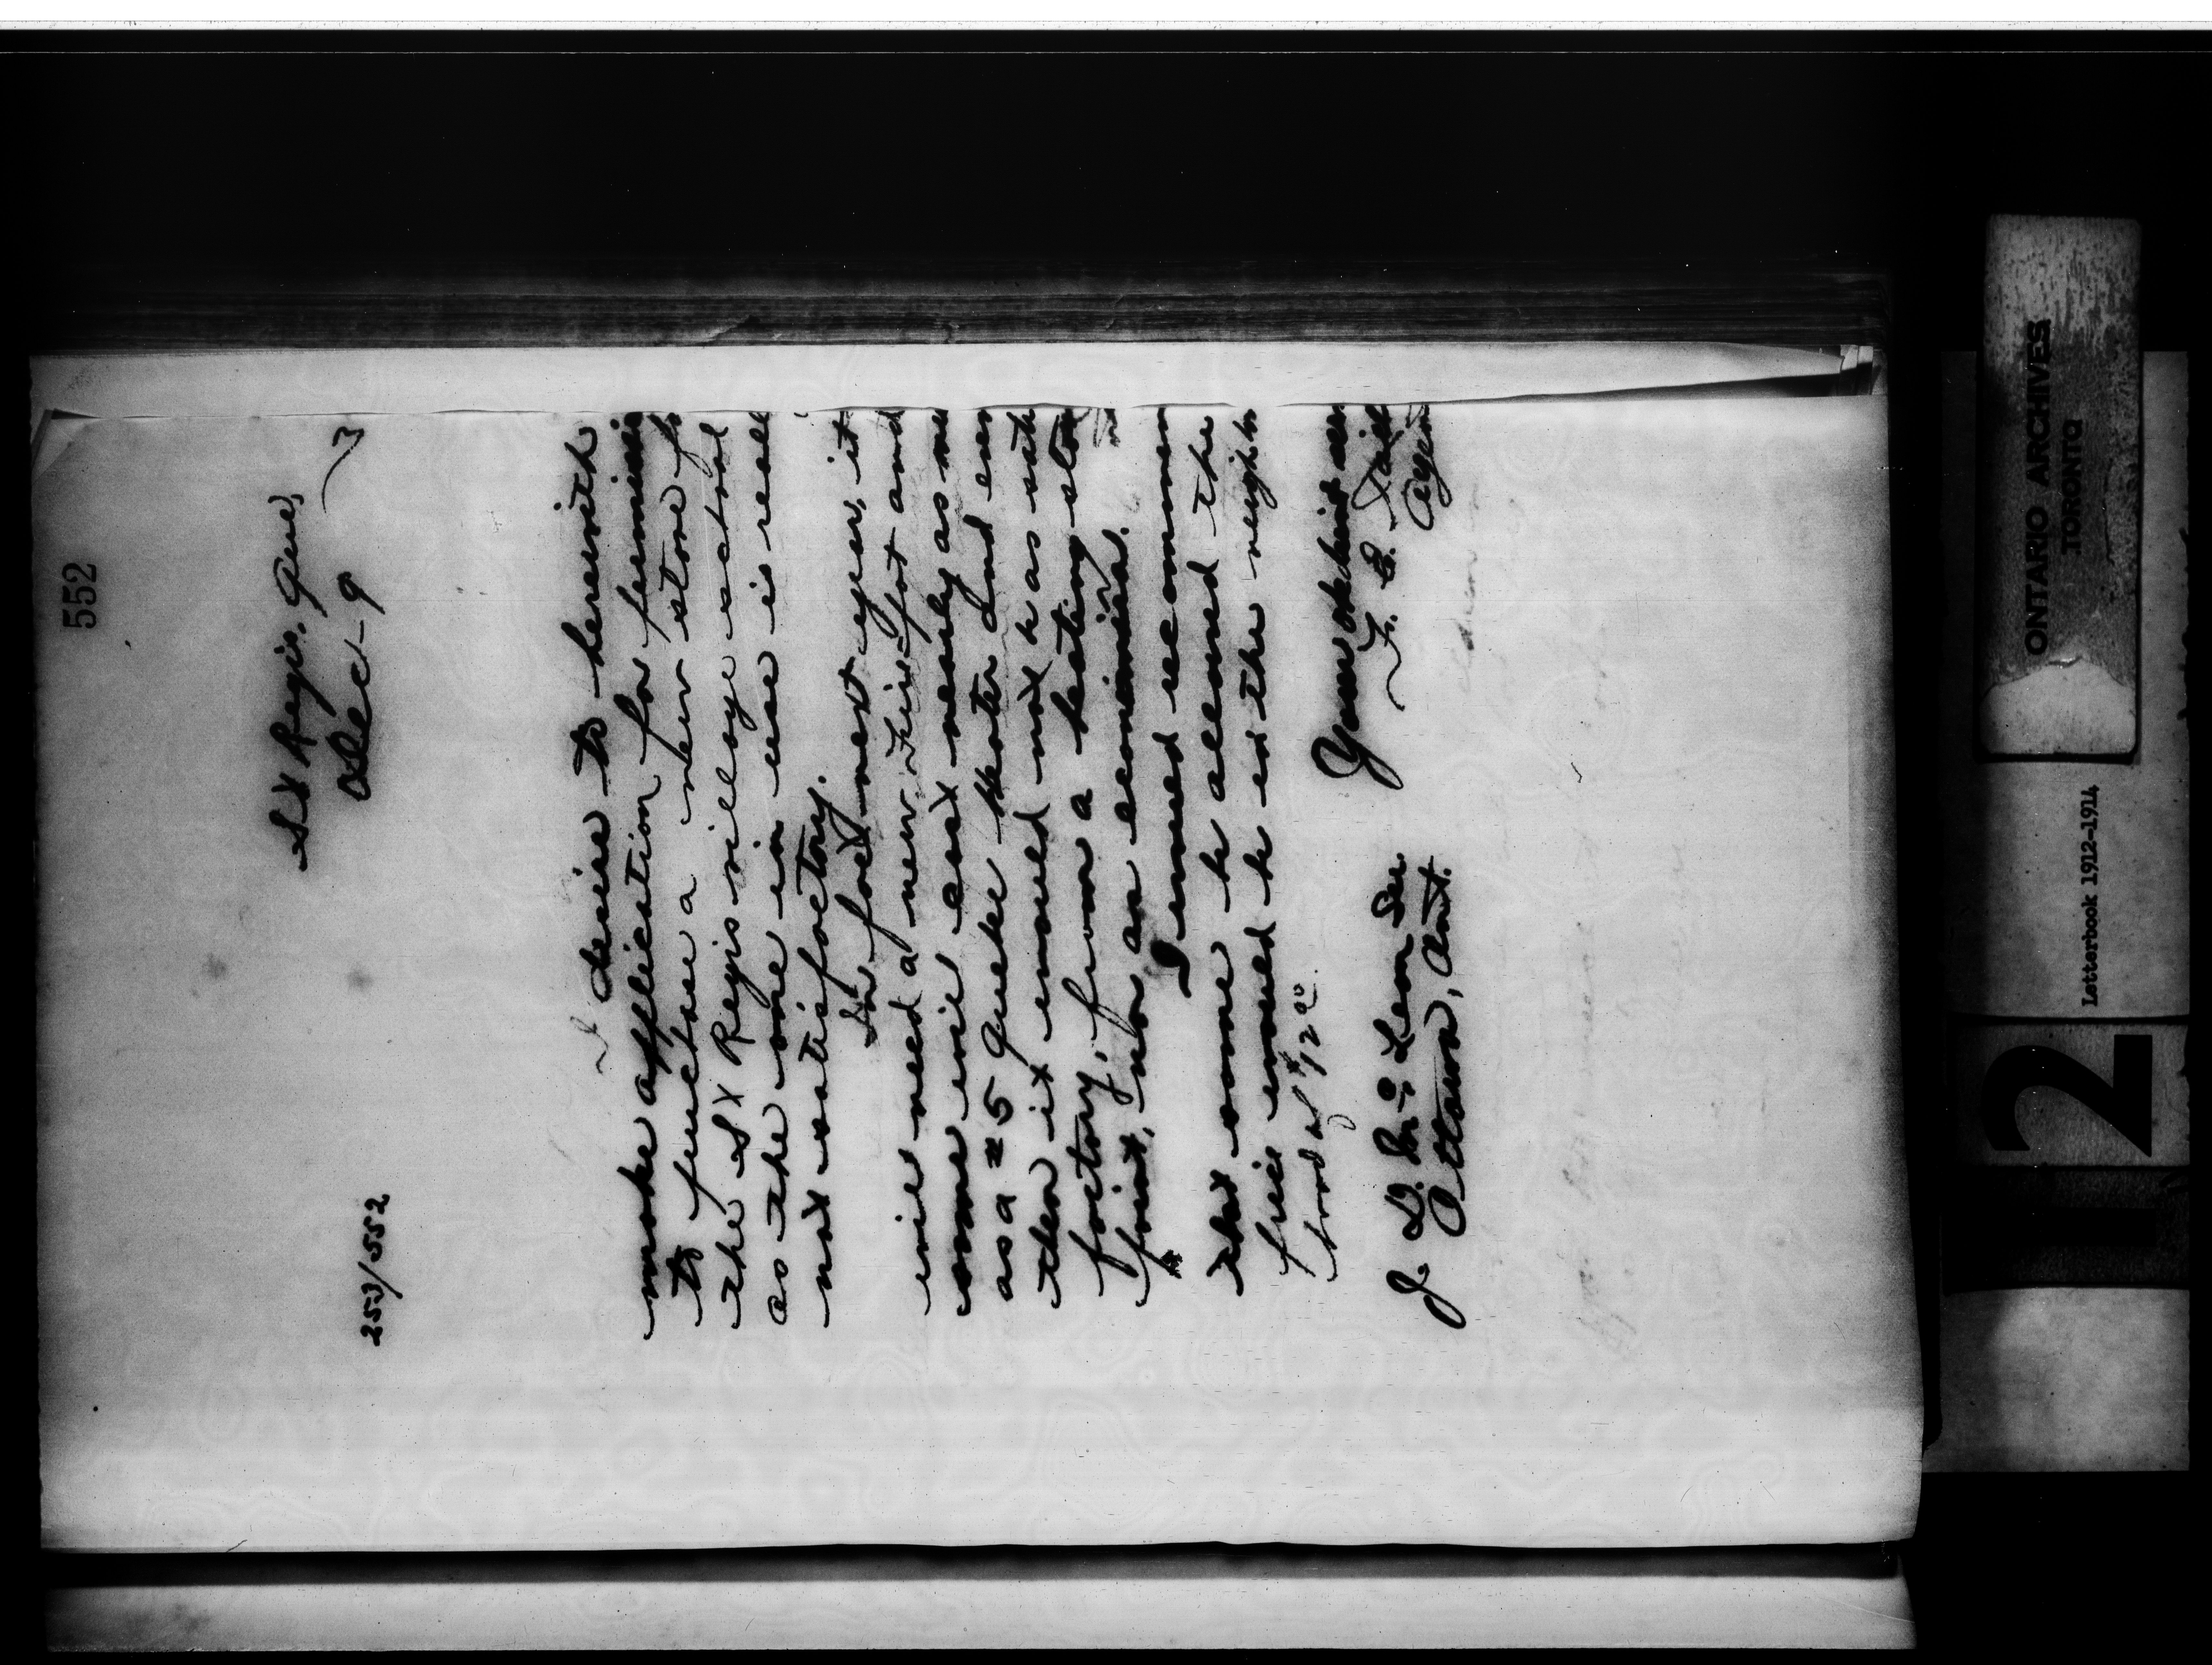 552
St Regis. Que,
Dec - 9 3
253/552
I desire to herewith
make application for permissi
to purchase a new stove fo
the St Regis village school
as the one in use is reall
not satisfactory.
In fact next year, it
will need a new fire pot and
some will cost nearly as mu
as a # 5 Quebec heater and even
then it would not be as satis
factory, from a heating stan
point, nor as economical.
I would recommen
that some be allowed the
price would be in the neighbo
hood of $12.00.
Your obedient ser
F. E. Taill
Agen
J. D. McLean Sec.
Ottawa, Ont.
ONTARIO ARCHIVES
TORONTO
Letterbook 1912-1914
2